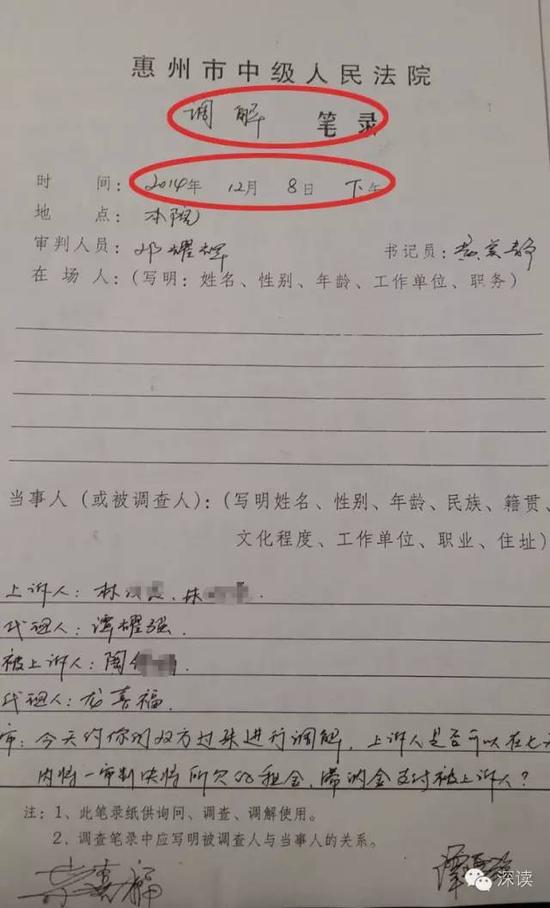 惠州市中级人民法院
调解 笔录
时 间：2014年 12月 8日 下午
地 点：本院
审判人员：邓耀辉 书记员：美静
在场人：（写明：姓名、性别、年龄、工作单位、职务）
当事人（或被调查人）：（写明姓名、性别、年龄、民族、籍贯、
文化程度、工作单位、职业、住址）
上诉人：林 、林
代理人：谭耀强
被上诉人：陶
代理人：龙喜福
审：今天约你们双方过来进行调解，上诉人是否可以在七天
内将一审判决将所欠的租金、滞纳金支付被上诉人？
注：1、此笔录纸供询问、调查、调解使用。
2、调查笔录中应写明被调查人与当事人的关系。
深读